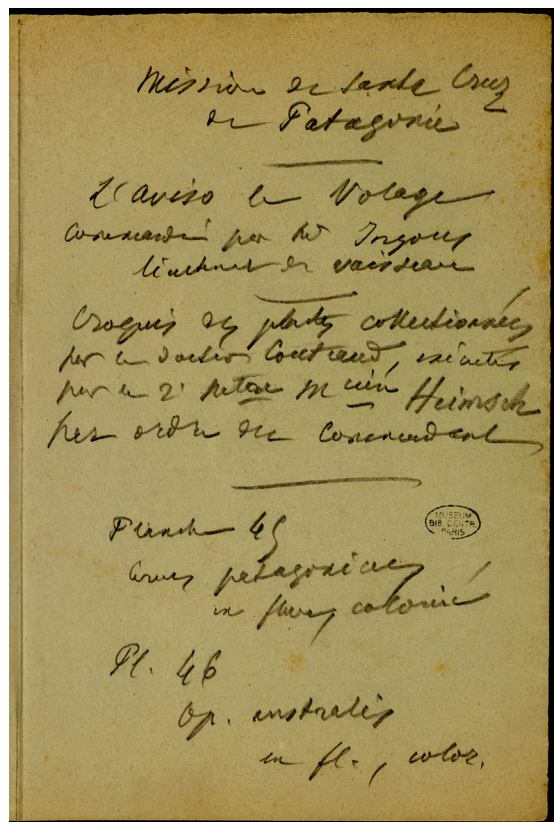 Mission de Santa Cruz
de Patagonie
L'aviso le Volage
commandé par Mr
lieutenant de vaisseau
Croquis des plantes collectionnées
par le Docteur exécutés
par le 2e Mtre Mcien Heimsch
par ordre du Commandant
MUSEUM
BIB. CENTR.
PARIS
Planche 45
patagonicus
en fleurs, colorié
Pl. 46
Op. australis
en fl., color.